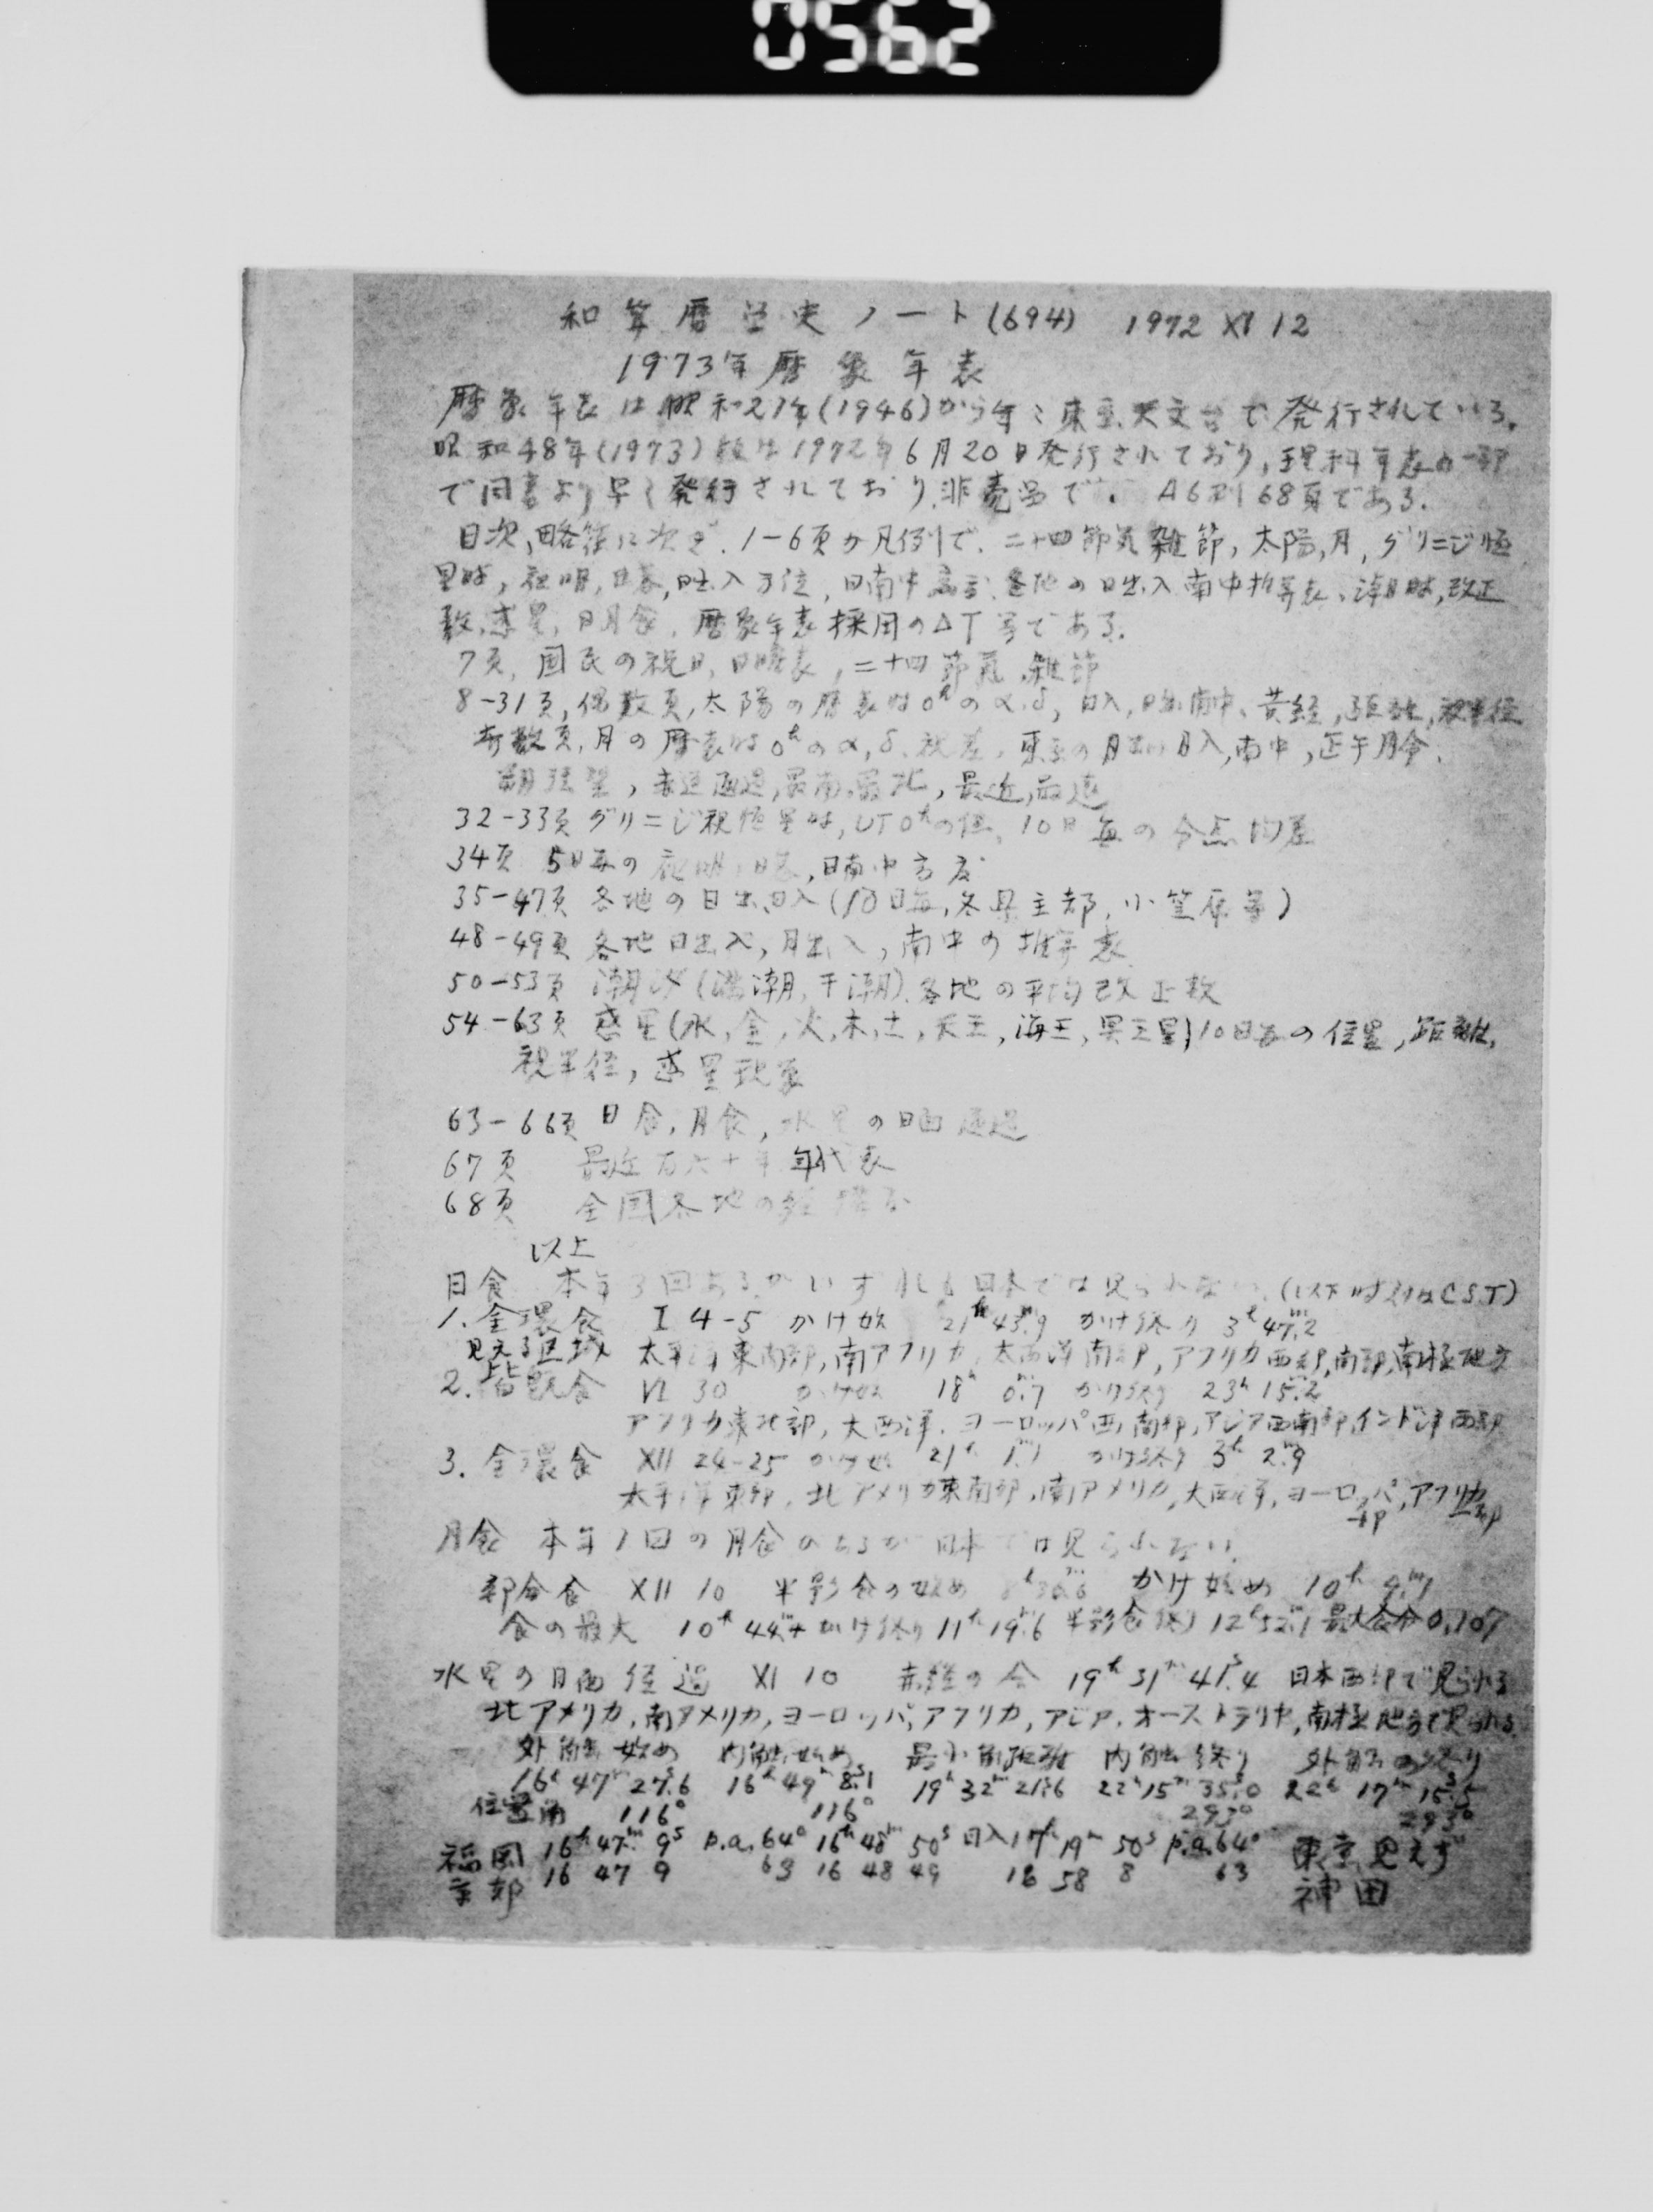 0562
和算暦学史ノート(694) 1972 XI 12
1973年暦象年表
暦象年表は昭和21年(1946)から年々東京天文台で発行されている。
昭和48年(1973)版は1972年6月20日発行されており,理科年表の一部
で同書より早く発行されており,非売品で、A6判68頁である.
目次,略符に次ぎ、1-6頁が凡例で、二十四節気雑節,太陽,月,グリニジ恒
星時,夜明,日暮,日出入方位,日南中高度,各地の日出入南中推算表、潮時,改正
数,惑星,日月食,暦象年表採用のΔT等である.
7頁,国民の祝日,日曜表,二十四節気,雑節
8-31頁,偶数頁,太陽の暦表は0ʰのα.δ,日入,日出,南中、黄経,距離,視半径
奇数頁,月の暦表は0ʰのα,δ,視差,東京の月出,月入,南中,正午月令、
朔弦望,赤道通過,最南,最北,最近,最遠
32-33頁 グリニジ視恒星時,UT0ʰの値,10日毎の分点均差
34頁 5日毎の夜明,日暮,日南中高度
35-47頁 各地の日出,日入(10日毎,各県主都,小笠原等)
48-49頁 各地日出入,月出入,南中の推算表
50-53頁 潮汐(満潮,干潮),各地の平均改正数
54-63頁 惑星(水,金,火,木,土,天王,海王,冥王星)10日毎の位置,距離,
視半径,惑星現象
63-66頁 日食,月食,水星の日面通過
67頁 最近 年代表
68頁 全国各地の経緯度
以上
日食 本年3回あるがいずれも日本では見られない.(以下時刻はCST)
1.金環食 I 4-5 かけ始 21ʰ43ᵐ.9 かけ終り 3ʰ47ᵐ.2
見える区域 太平洋東南部,南アフリカ,太西洋南部,アフリカ西部,南部,南極地方
2.皆既食 VI 30 かけ始 18ʰ 0ᵐ.7 かけ終り 23ʰ15ᵐ.2
アフリカ東北部,大西洋,ヨーロッパ西南部,アジア西南部,インド洋西部
3.金環食 XII 24-25 かけ始 21ʰ 1ᵐ.1 かけ終り 3ʰ 2ᵐ.9
太平洋東部,北アメリカ東南部,南アメリカ,大西洋,ヨーロッパ一部,アフリカ
月食 本年1回の月食のあるが日本では見られない.
部分食 XII 10 半影食の始め かけ始め 10ʰ 9ᵐ.1
食の最大 10ʰ44ᵐ.4 かけ終り 11ʰ19ᵐ.6 半影食終り 12ʰ52ᵐ.1 最大食分0.107
水星の日面経過 XI 10 赤経の合 19ʰ31ᵐ41ˢ.4 日本西部で見られる
北アメリカ,南アメリカ,ヨーロッパ,アフリカ,アジア,オーストラリヤ,南極地方で見られる.
外触始め 内触始め 最小角距離 内触終り 外触の終り
16ʰ47ᵐ27ˢ.6 16ʰ49ᵐ8ˢ.1 19ʰ32ᵐ21ˢ.6 22ʰ15ᵐ35ˢ.0 22ʰ17ᵐ15ˢ.5
位置角 116° 116° 293° 293°
福岡 16ʰ47ᵐ9ˢ p.a.64° 16ʰ48ᵐ50ˢ 日入17ʰ19ᵐ50ˢ p.a.64° 東京見えず
京都 16 47 9 63 16 48 49 16 58 8 63 神田